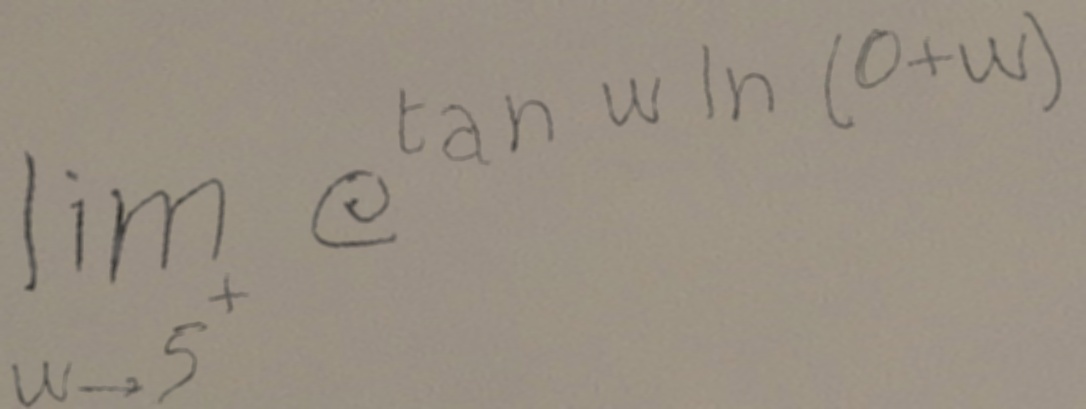 lim_{w→5^+} e^{tan w ln (0+w)}